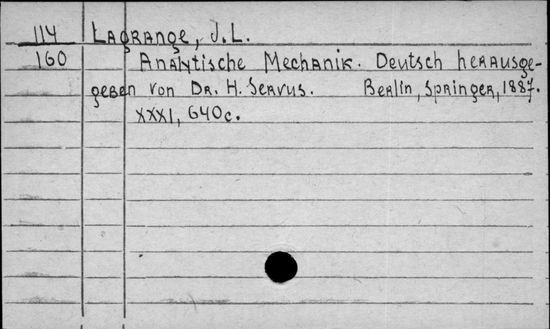 114 Lagrange, J.L.
160 Analytische Mechanik. Deutsch herausge-
geben von Dr. H. Servus. Berlin, Springer, 1887.
XXXI, 640c.